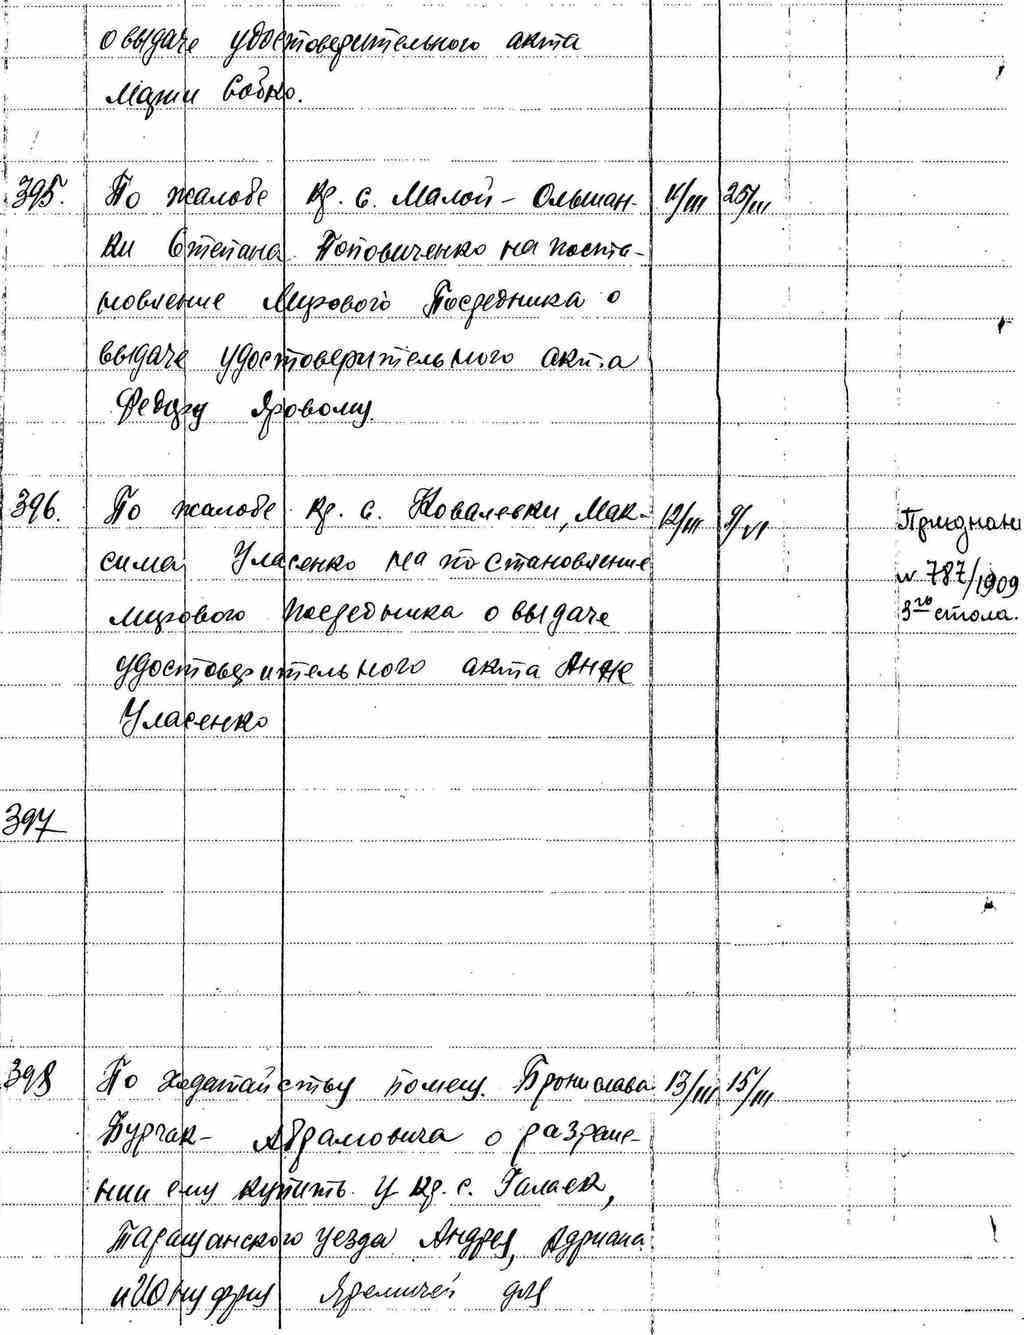 о выдаче удостоверительного акта
Марии Собко.
395. По жалобе кр. с. Малой-Ольшан- 11/III 25/III
ки Степана Поповиченко на поста-
новление Мирового Посредника о
выдаче удостоверительного акта
Федору Яровому.
396. По жалобе кр. с. Ковалевки, Мак- 12/III 9/VI
сима Уласенко на постановление
мирового посредника о выдаче
удостоверительного акта Анне
Уласенко
Приднан
N 787/1909
3го стола.
397
398 По ходатайству помещ. Бронислава 13/III 15/III
Бурчак-Абрамовича о разреше-
нии ему купить у кр. с. Галаек,
Таращанского уезда Андрея, Адриана
и Онуфрия Яремичей для